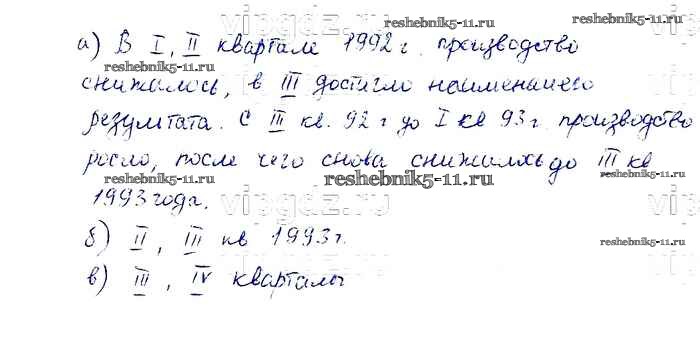 reshebnik5-11.ru
reshebnik5-11.ru
а) В I, II квартале 1992 г. производство
reshebnik5-11.ru
снижалось, в III достигло наименьшего
результата. С III кв. 92 г до I кв 93 г. производство
росло, после чего снова снижалось до III кв
reshebnik5-11.ru
reshebnik5-11.ru
1993 года.
vipgdz.ru
б) II, III кв 1993 г.
reshebnik5-11.ru
в) III, IV кварталы
reshebnik5-11.ru